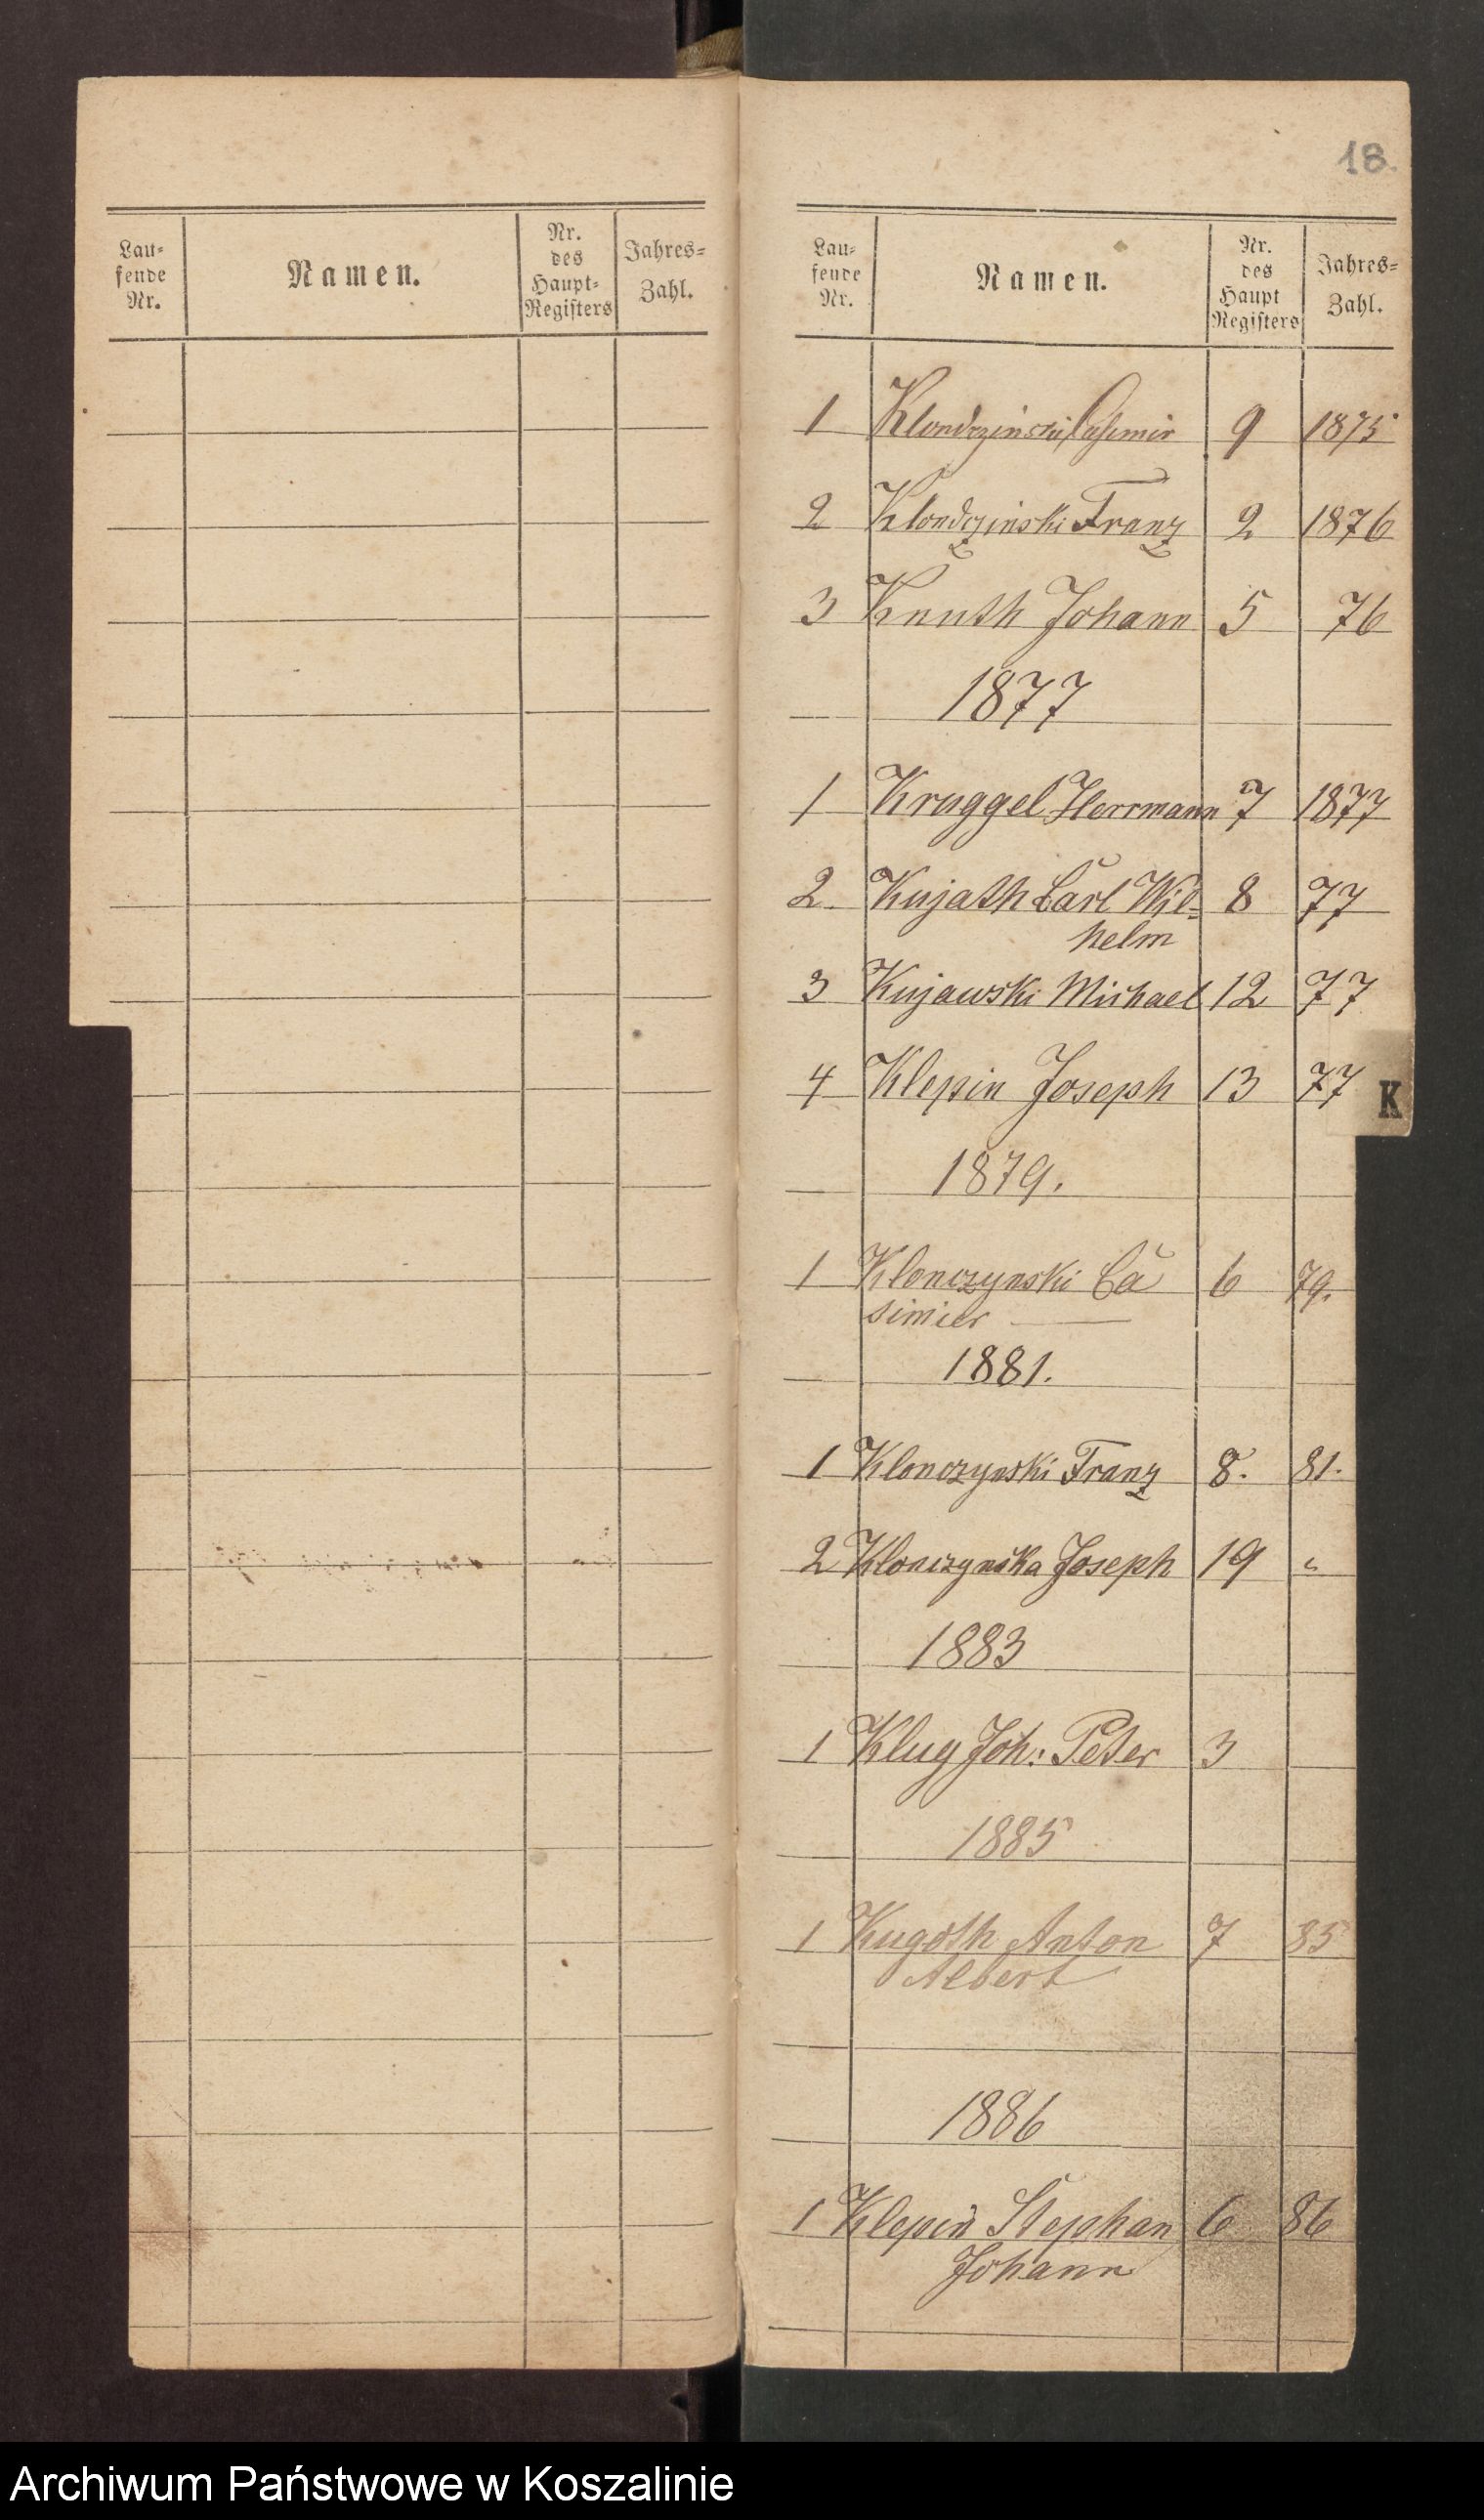 18.
Lau-
fende
Nr.
Namen.
Nr.
des
Haupt-
Registers
Jahres-
Zahl.
Lau-
fende
Nr.
Namen.
Nr.
des
Haupt
Registers
Jahres-
Zahl.
1 Klondrzinski Casimir 9 1875
2 Klondzinski Franz 2 1876
3 Knuth Johann 5 76
1877
1 Kruggel Herrmann 7 1877
2 Kujath Carl Wil- 8 77
helm
3 Kujawski Michael 12 77
4 Klepin Joseph 13 77
K
1879.
1 Klonczynski Ca 6 79.
simier
1881.
1 Klonczynski Franz 8. 81.
2 Klonczynska Joseph 19 "
1883
1 Klug Joh: Peter 3
1885
1 Kugoth Anton 7 85
Albert
1886
1 Klepin Stephan 6 86
Johann
Archiwum Państwowe w Koszalinie